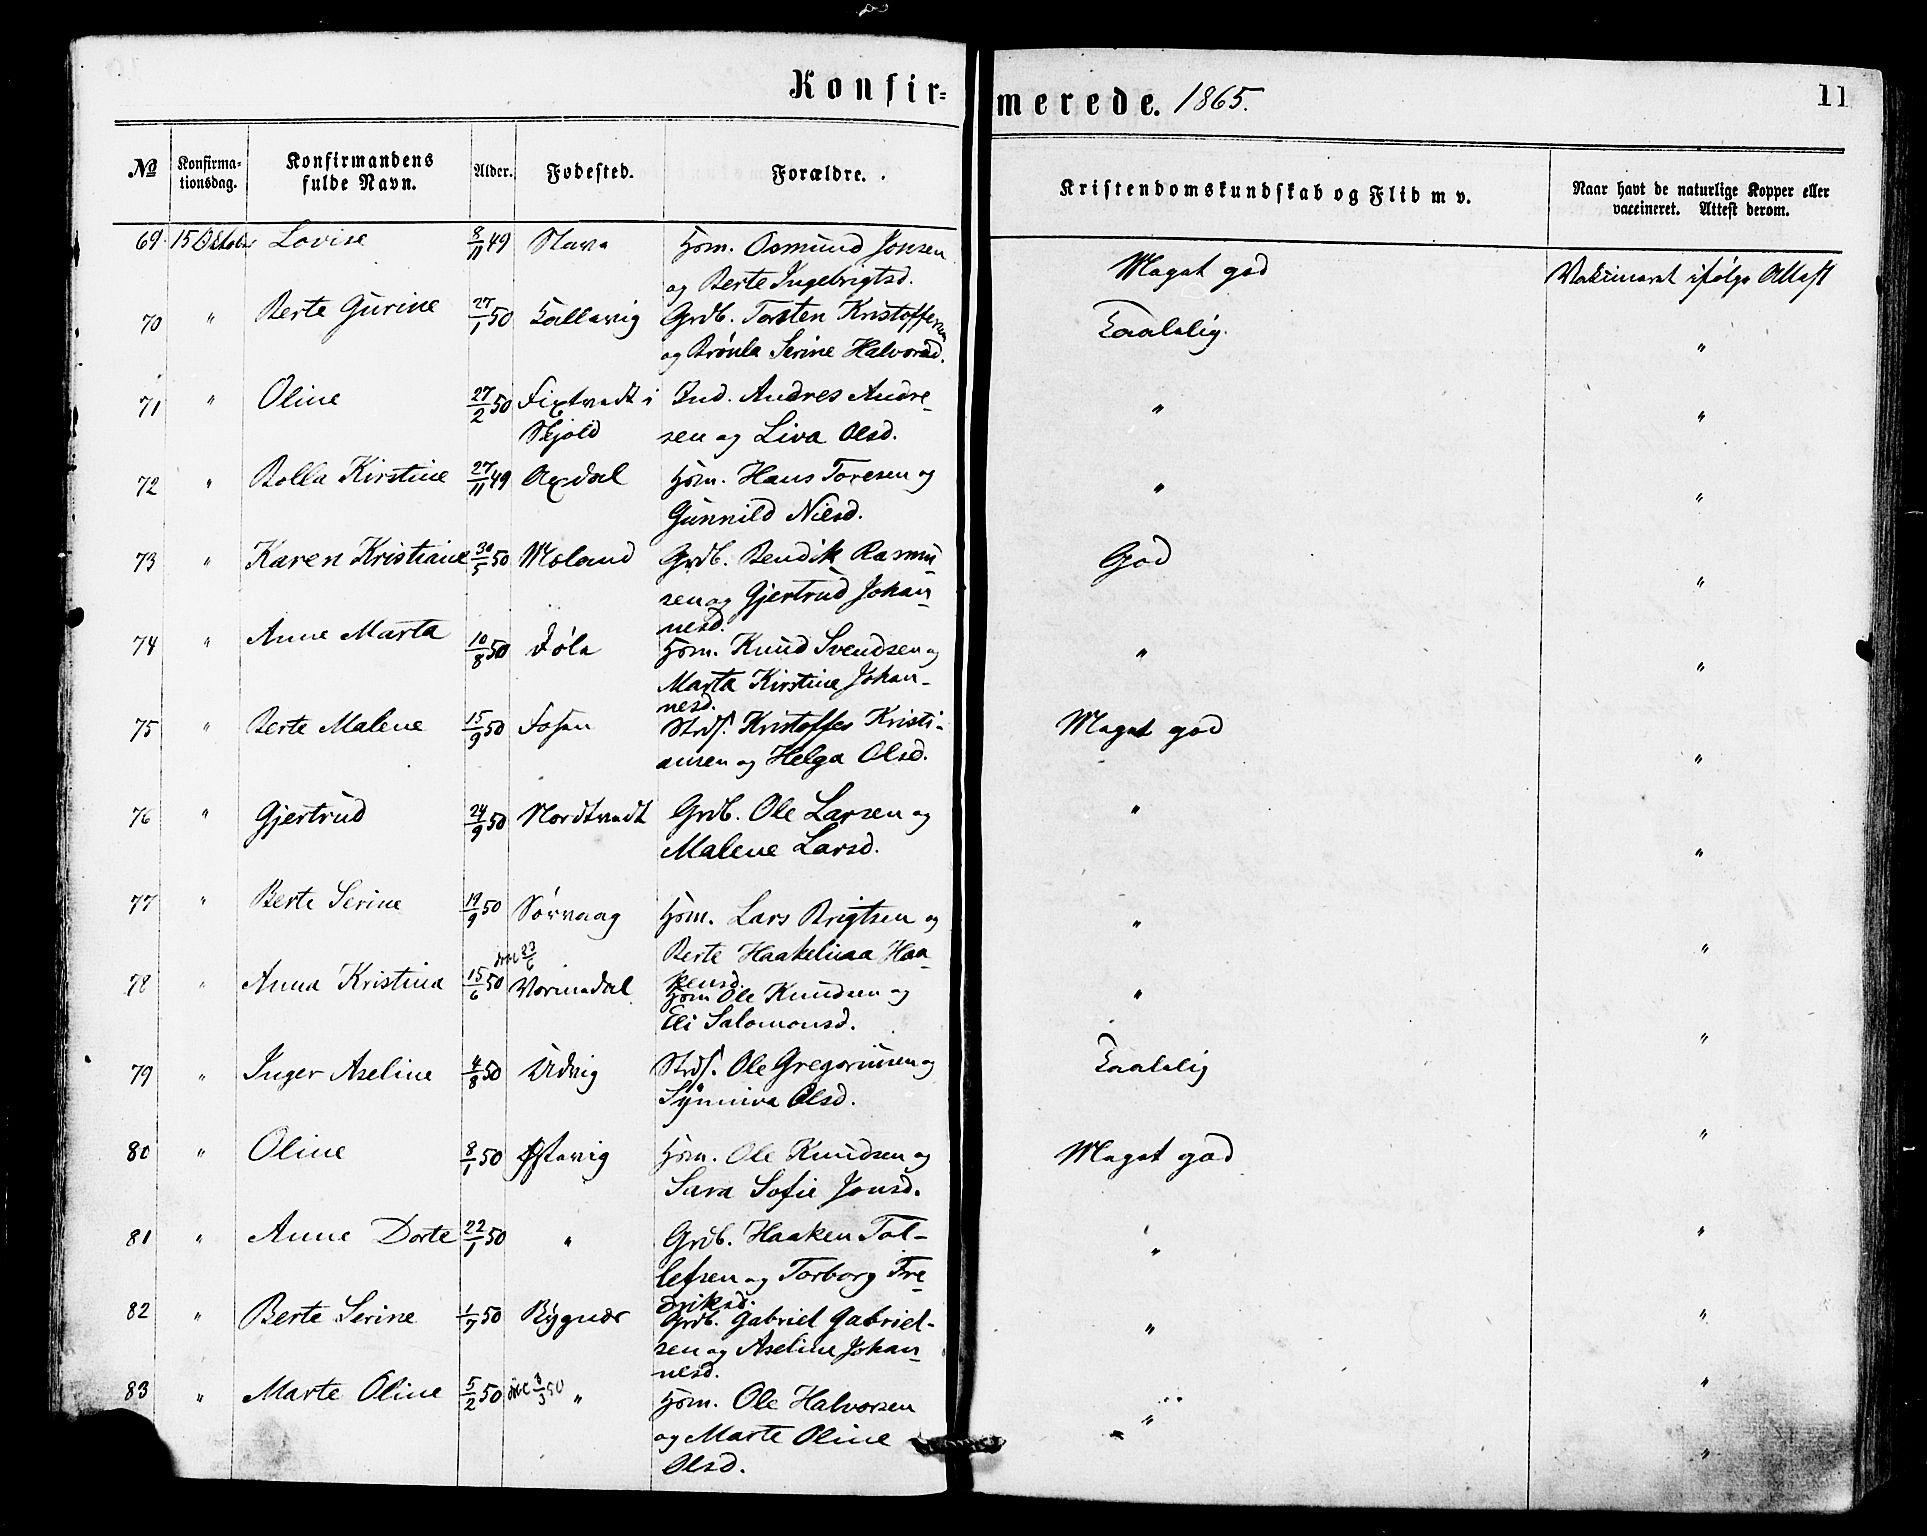 Konfir=merede. 1865.
11
№ Konfirma-tionsdag. Konfirmandens fulde Navn. Alder. Fødested. Forældre. Kristendomskundskab og Flid m v. Naar havt de naturlige Kopper eller vaccineret. Attest derom.
69 15 Oktober Lovise 8/11 49 Stava Hsm. Osmund Jonsen
og Berte Ingebrigtsd. Meget god Vakcineret ifølge Attest
70 " Berte Gurine 27/1 50 Kallevig Grdb. Torsten Kristoffersen
og Brønla Serine Halvorsd. Taalelig. "
71 " Oline 27/2 50 Fixtvedt i Ind. Andres Andre-
Skjold sen og Liva Olsd. " "
72 " Bolla Kirstine 27/11 49 Axdal Hsm. Hans Toresen og
Gunnild Nilsd. " "
73 " Karen Kristiane 30/5 50 Moland Grdb. Bendik Rasmu-
sen og Gjertrud Johan-
nesd. God "
74 " Anne Marta 10/8 50 Føla Hsm. Knud Svendsen og
Marta Kirstine Johan-
nesd. " "
75 " Berte Malene 15/9 50 Fosen Strds. Kristoffer Kristi-
ansen og Helga Olsd. Meget god "
76 " Gjertrud 24/9 50 Nordtvedt Grdb. Ole Larsen og
Malene Larsd. " "
77 " Berte Serine 19/9 50 Sørvaag Hsm. Lars Brigtsen og
Berte Haakelinaa Haa-
kensd. " "
78 " Anna Kristina 15/6 50 døbt 23/6 Vormedal Hsm Ole Knudsen og
Eli Salomonsd. " "
79 " Inger Aseline 4/8 50 Udvig Strds. Ole Gregoriusen og
Synniva Olsd. Taalelig "
80 " Oline 8/1 50 Østevig Hsm. Ole Knudsen og
Sara Sofie Jonsd. Meget god "
81 " Anne Dorte 22/1 50 " Grdb. Haaken Tol-
lefsen og Torborg Fre-
driksd. " "
82 " Berte Serine 1/7 50 Rygnes Grdb. Gabriel Gabriel-
sen og Aseline Johan-
nesd. " "
83 " Marte Oline 5/2 50 døbt 3/3 50 " Hsm. Ole Halvorsen
og Marte Oline
Olsd. " "